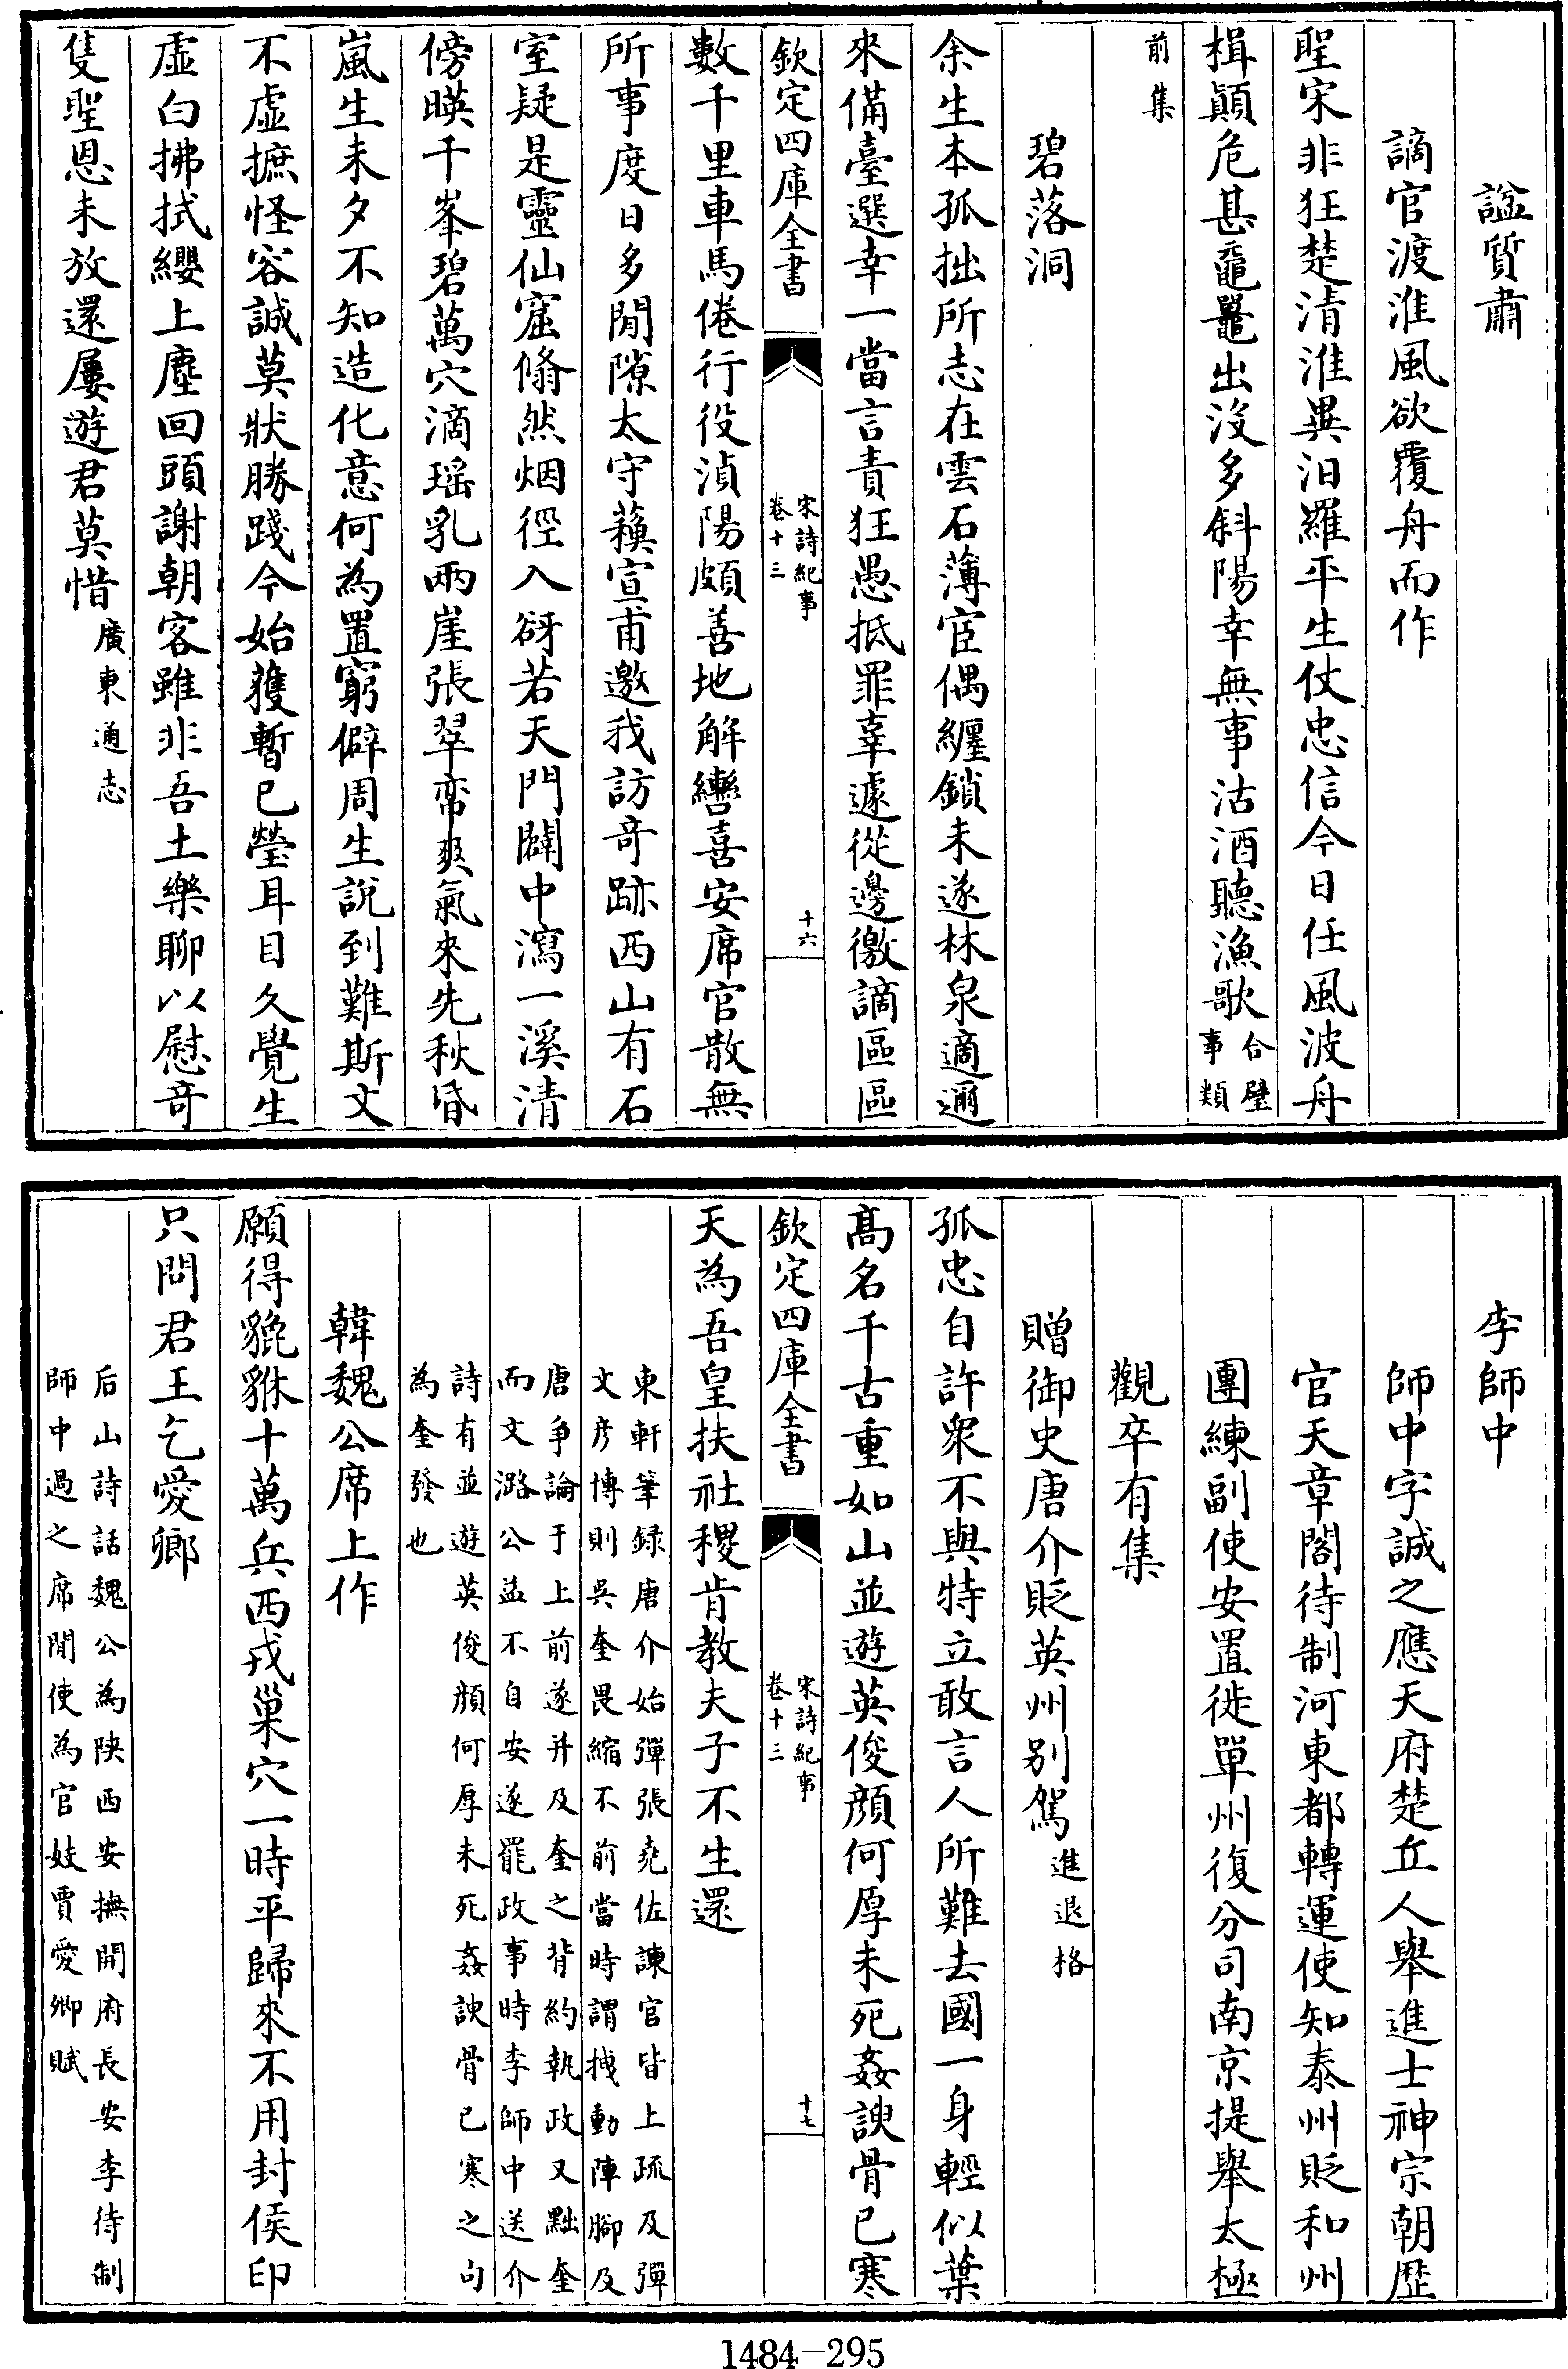 諡質肅
謫官渡淮風欲覆舟而作
聖宋非狂楚清淮異汨羅平生仗忠信今日任風波舟
楫顛危甚黿鼉出沒多斜陽幸無事沽酒聽漁歌合璧
事類
前集
碧落洞
余生本孤拙所志在雲石薄宦偶纏鎖未遂林泉適邇
來備臺選幸一當言責狂愚抵罪辜遽從邊徼謫區區
欽定四庫全書
宋詩紀事
卷十三
十六
數千里車馬倦行役湞陽頗善地解轡喜安席官散無
所事度日多閒隙太守蘓宣甫邀我訪竒跡西山有石
室疑是靈仙窟翛然烟徑入谺若天門闢中瀉一溪清
傍暎千峯碧萬穴滴瑶乳兩崖張翠帟爽氣來先秋昏
嵐生未夕不知造化意何為置窮僻周生說到難斯文
不虛摭怪容誠莫狀勝踐今始獲暫已瑩耳目久覺生
虛白拂拭纓上塵回頭謝朝客雖非吾土樂聊以慰竒
隻聖恩未放還屢遊君莫惜廣東通志
李師中
師中字誠之應天府楚丘人舉進士神宗朝歴
官天章閣待制河東都轉運使知泰州貶和州
團練副使安置徙單州復分司南京提舉太極
觀卒有集
贈御史唐介貶英州别駕進退格
孤忠自許衆不與特立敢言人所難去國一身輕似葉
髙名千古重如山並遊英俊顔何厚未死姦諛骨已寒
欽定四庫全書
宋詩紀事
卷十三
十七
天為吾皇扶社稷肯教夫子不生還
東軒筆録唐介始彈張堯佐諫官皆上疏及彈
文彦博則吳奎畏縮不前當時謂拽動陣腳及
唐爭論于上前遂并及奎之背約執政又黜奎
而文潞公益不自安遂罷政事時李師中送介
詩有並遊英俊顔何厚未死姦諛骨已寒之句
為奎發也
韓魏公席上作
願得貔貅十萬兵西戎巢穴一時平歸來不用封侯印
只問君王乞愛卿
后山詩話魏公為陜西安撫開府長安李待制
師中過之席閒使為官妓賈愛卿賦
1484—295